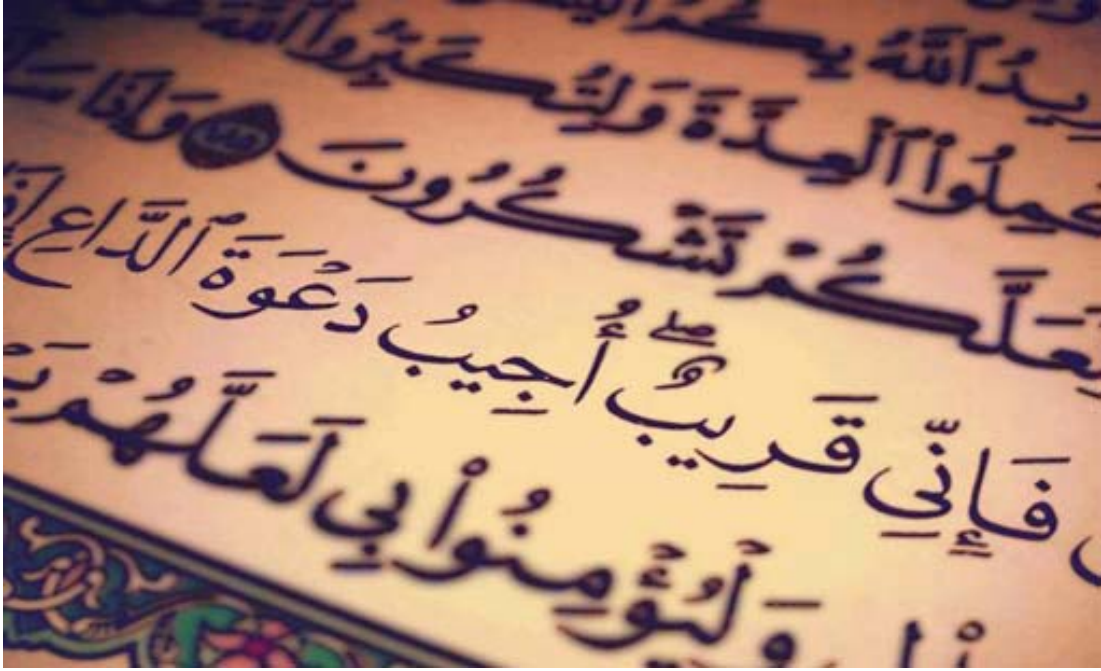 يدُ ٱللَّهُ بِكُمُ
كْمِلُوا۟ ٱلْعِدَّةَ وَلِتُكَبِّرُوا۟ ٱللَّهَ
لَعَلَّكُمْ تَشْكُرُونَ ۝١٨٥ وَإِذَا سَ
فَإِنِّي قَرِيبٌ ۖ أُجِيبُ دَعْوَةَ ٱلدَّاعِ إِذَا
وَلْيُؤْمِنُوا۟ بِي لَعَلَّهُمْ يَرْ